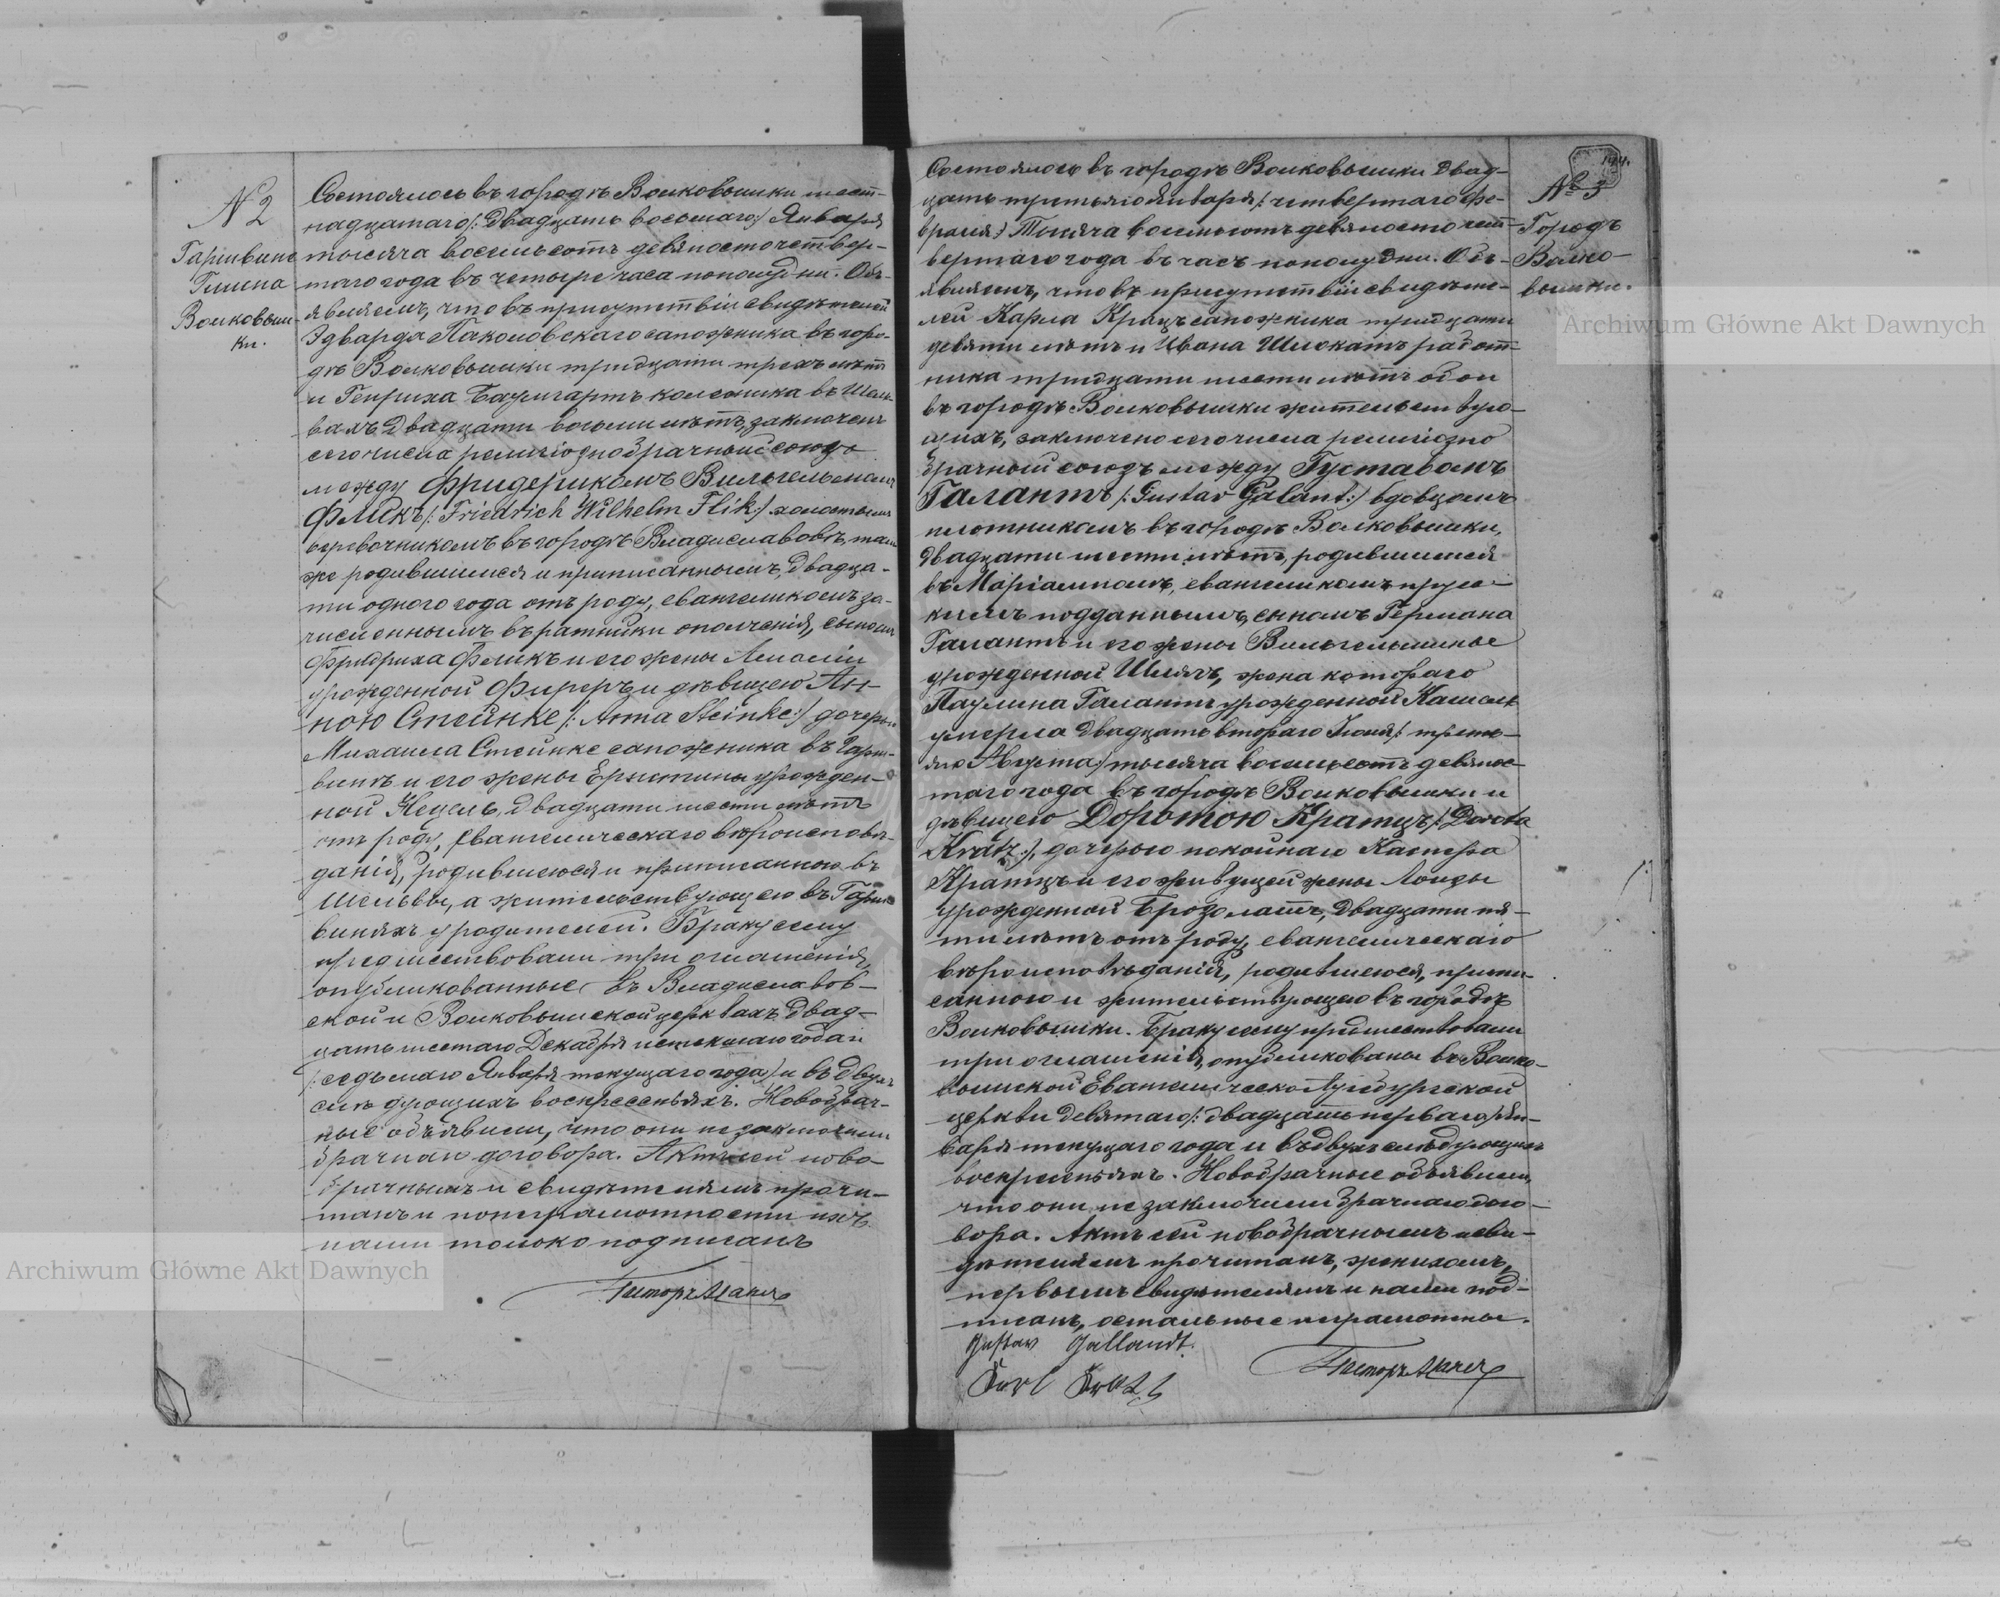 № 2
Гаршвине
Гмина
Волковыш-
ки.
Состоялось въ городѣ Волковышки шест-
надцатаго /: двадцать восьмаго :/ Января
тысяча восемьсотъ девяносто четвер-
таго года въ четыре часа пополудни. Объ-
являемъ, что въ присутствіи свидѣтелей
Эдварда Паколовскаго сапожника въ горо-
дѣ Волковышки тридцати трехъ лѣтъ
и Генриха Баумгартъ колесника въ Шель-
вахъ двадцати восьми лѣтъ, заключенъ
сего числа религіозно брачный союзъ
между Фридерикомъ Вильгельмомъ
Фликъ /: Friedrich Wilhelm Flik :/ холостымъ
веревочникомъ въ городѣ Владиславовѣ, тамъ
же родившимся и приписаннымъ, двадца-
ти одного года отъ роду, евангеликомъ за-
численнымъ въ ратники ополченія, сыномъ
Фридриха Фликъ и его жены Амаліи
урожденной Фиреръ и дѣвицею Ан-
ною Стейнке /: Anna Steinke :/ дочерью
Михаила Стейнке сапожника въ Гарш-
винѣ и его жены Эрнстины урожден-
ной Нецель, двадцати шести лѣтъ
отъ роду, Евангелическаго вѣроисповѣ-
данія, родившеюся и приписанною въ
Шельвы, а жительствующею въ Гарш-
виняхъ у родителей. Браку сему
предшествовали три оглашенія,
опубликованные въ Владиславов-
ской и Волковышской церквахъ двад-
цать шестаго Декабря истекшаго года
/: седьмаго Января текущаго года :/ и въ двухъ
слѣдующихъ воскресеньяхъ. Новобрач-
ные объявили, что они не заключили
брачнаго договора. Актъ сей ново-
брачнымъ и свидѣтелямъ прочи-
танъ и по неграмотности ихъ
нами только подписанъ
Пасторъ
194.
№ 3
Городъ
Волко-
вышки.
Состоялось въ городѣ Волковышки двад-
цать третьяго Января /: четвертаго Фе-
враля :/ Тысяча восемьсотъ девяносто чет-
вертаго года въ часъ пополудни. Объ-
являемъ, что въ присутствіи свидѣте-
лей Карла Крацъ сапожника тридцати
девяти лѣтъ и Ивана Шмокатъ работ-
ника тридцати шести лѣтъ обои
въ городѣ Волковышки жительствую-
щихъ, заключено сего числа религіозно
брачный союзъ между Густавомъ
Галантъ /: Gustav Galant :/ вдовцомъ
плотникомъ въ городѣ Волковышки,
двадцати шести лѣтъ, родившимся
въ Маріамполѣ, евангеликомъ прус-
кимъ подданнымъ, сыномъ Германа
Галантъ и его жены Вильгельмины
урожденной Шлягъ, жена котораго
Паулина Галантъ урожденной
умерла двадцать втораго Іюля /: треть-
яго Августа :/ тысяча восемьсотъ девянос-
таго года въ городѣ Волковышки и
дѣвицею Доротою Кратцъ /: Dorota
Kratz :/, дочерью покойнаго Каспера
Кратцъ и его живущей жены Лоизы
урожденной двадцати пя-
ти лѣтъ отъ роду, евангелическаго
вѣроисповѣданія, родившеюся, припи-
санною и жительствующею въ городѣ
Волковышки. Браку сему предшествовали
три оглашенія, опубликованы въ Волко-
вышской Евангелическо Аугсбургской
церкви девятаго /: двадцать перваго :/ Ян-
варя текущаго года и въ двухъ слѣдующихъ
воскресеньяхъ. Новобрачные объявили,
что они не заключили брачнаго дого-
вора. Актъ сей новобрачнымъ и сви-
дѣтелямъ прочитанъ, женихомъ,
первымъ свидѣтелямъ и нами под-
писанъ, остальные неграмотны.
Gustav Gallandt.
Karl Kratz
Пасторъ
Archiwum Główne Akt Dawnych
Archiwum Główne Akt Dawnych